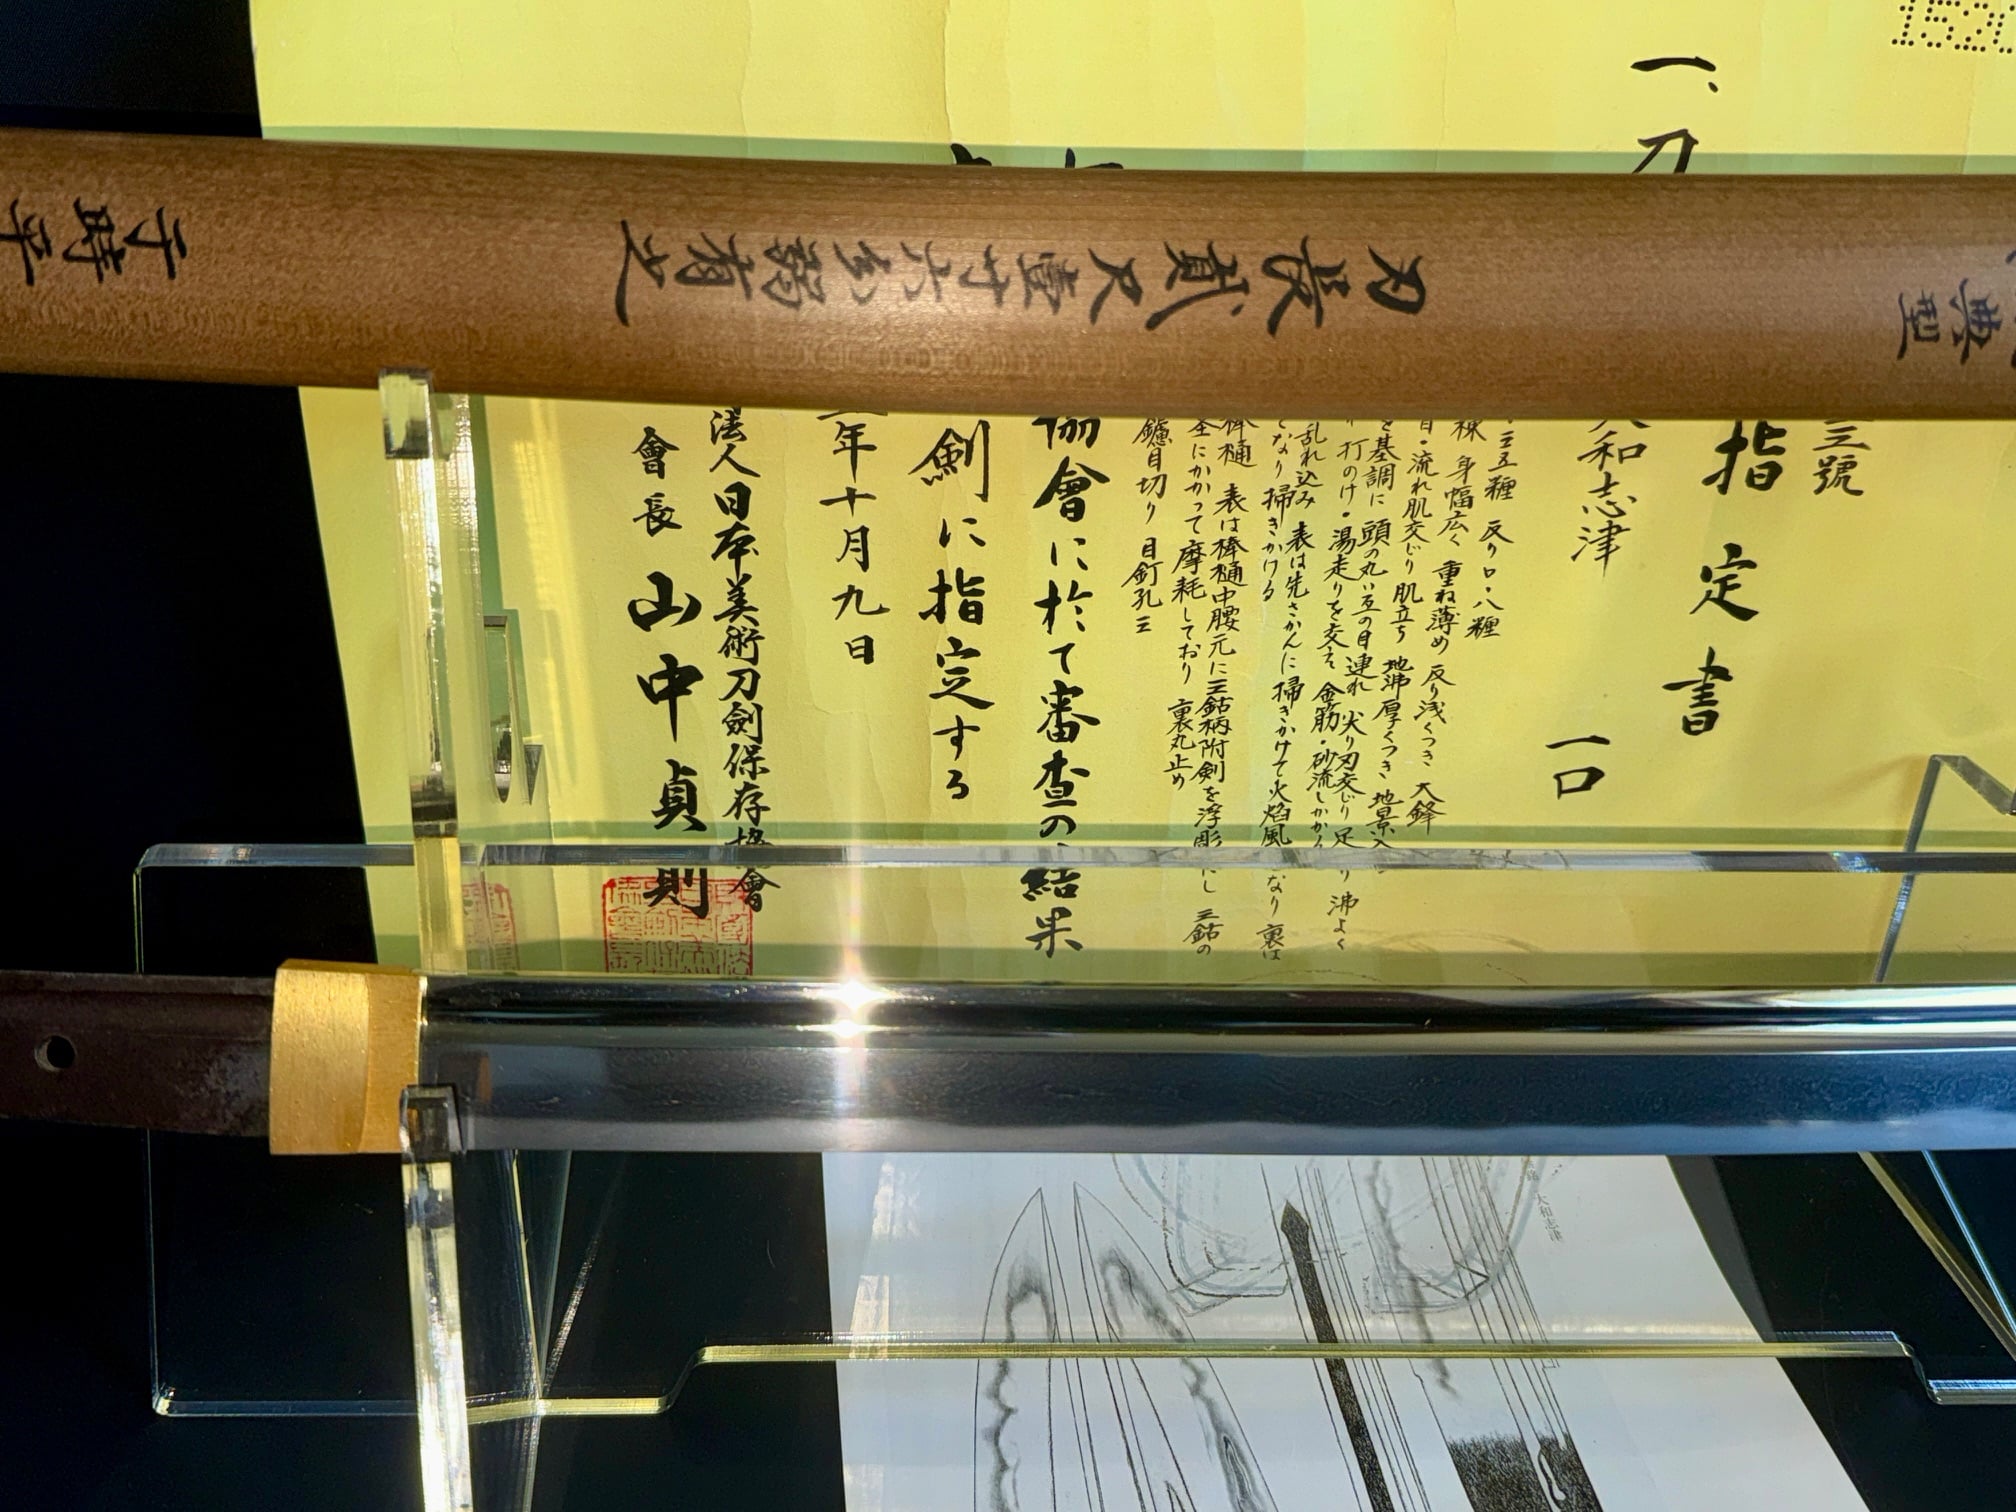 典
型
刃長貳尺壹寸六分弱有之
于時平
1520
一、刀
三號
指定書
大和志津
一口
反り〇・八糎
棟 身幅広く 重ね薄め 反り浅くつき 大鋒
目・流れ肌交じり 肌立ち 地沸厚くつき 地景
を基調に 頭の丸い互の目連れ 尖り刃交じり 足
打のけ・湯走りを交え 金筋・砂流しかかり 沸よく
乱れ込み 表は先さかんに掃きかけて火焰風となり 裏は
なり 掃きかける
棒樋 表は棒樋中腰元に三鈷柄附剣を浮彫にし 三鈷の
茎にかかって摩耗しており 裏丸止め
鑢目切り 目釘孔三
協會に於て審査の結果
劍に指定する
年十月九日
法人日本美術刀劍保存協會
會長 山中貞則
大和志津